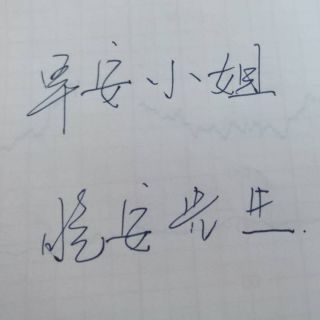 早安小姐
晚安先生.